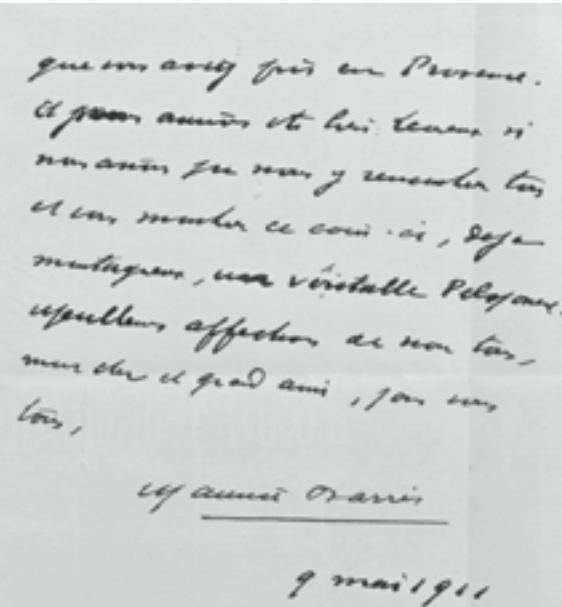 que vous avez pris en Provence.
Et nous aurions été bien heureux si
nous avions pu nous y rencontrer tous
et vous montrer ce coin-ci, déjà
montagneux, un véritable Péloponèse.
Meilleures affections de nous tous,
mon cher et grand ami, pour vous
tous,
Maurice Barrès
9 mai 1911